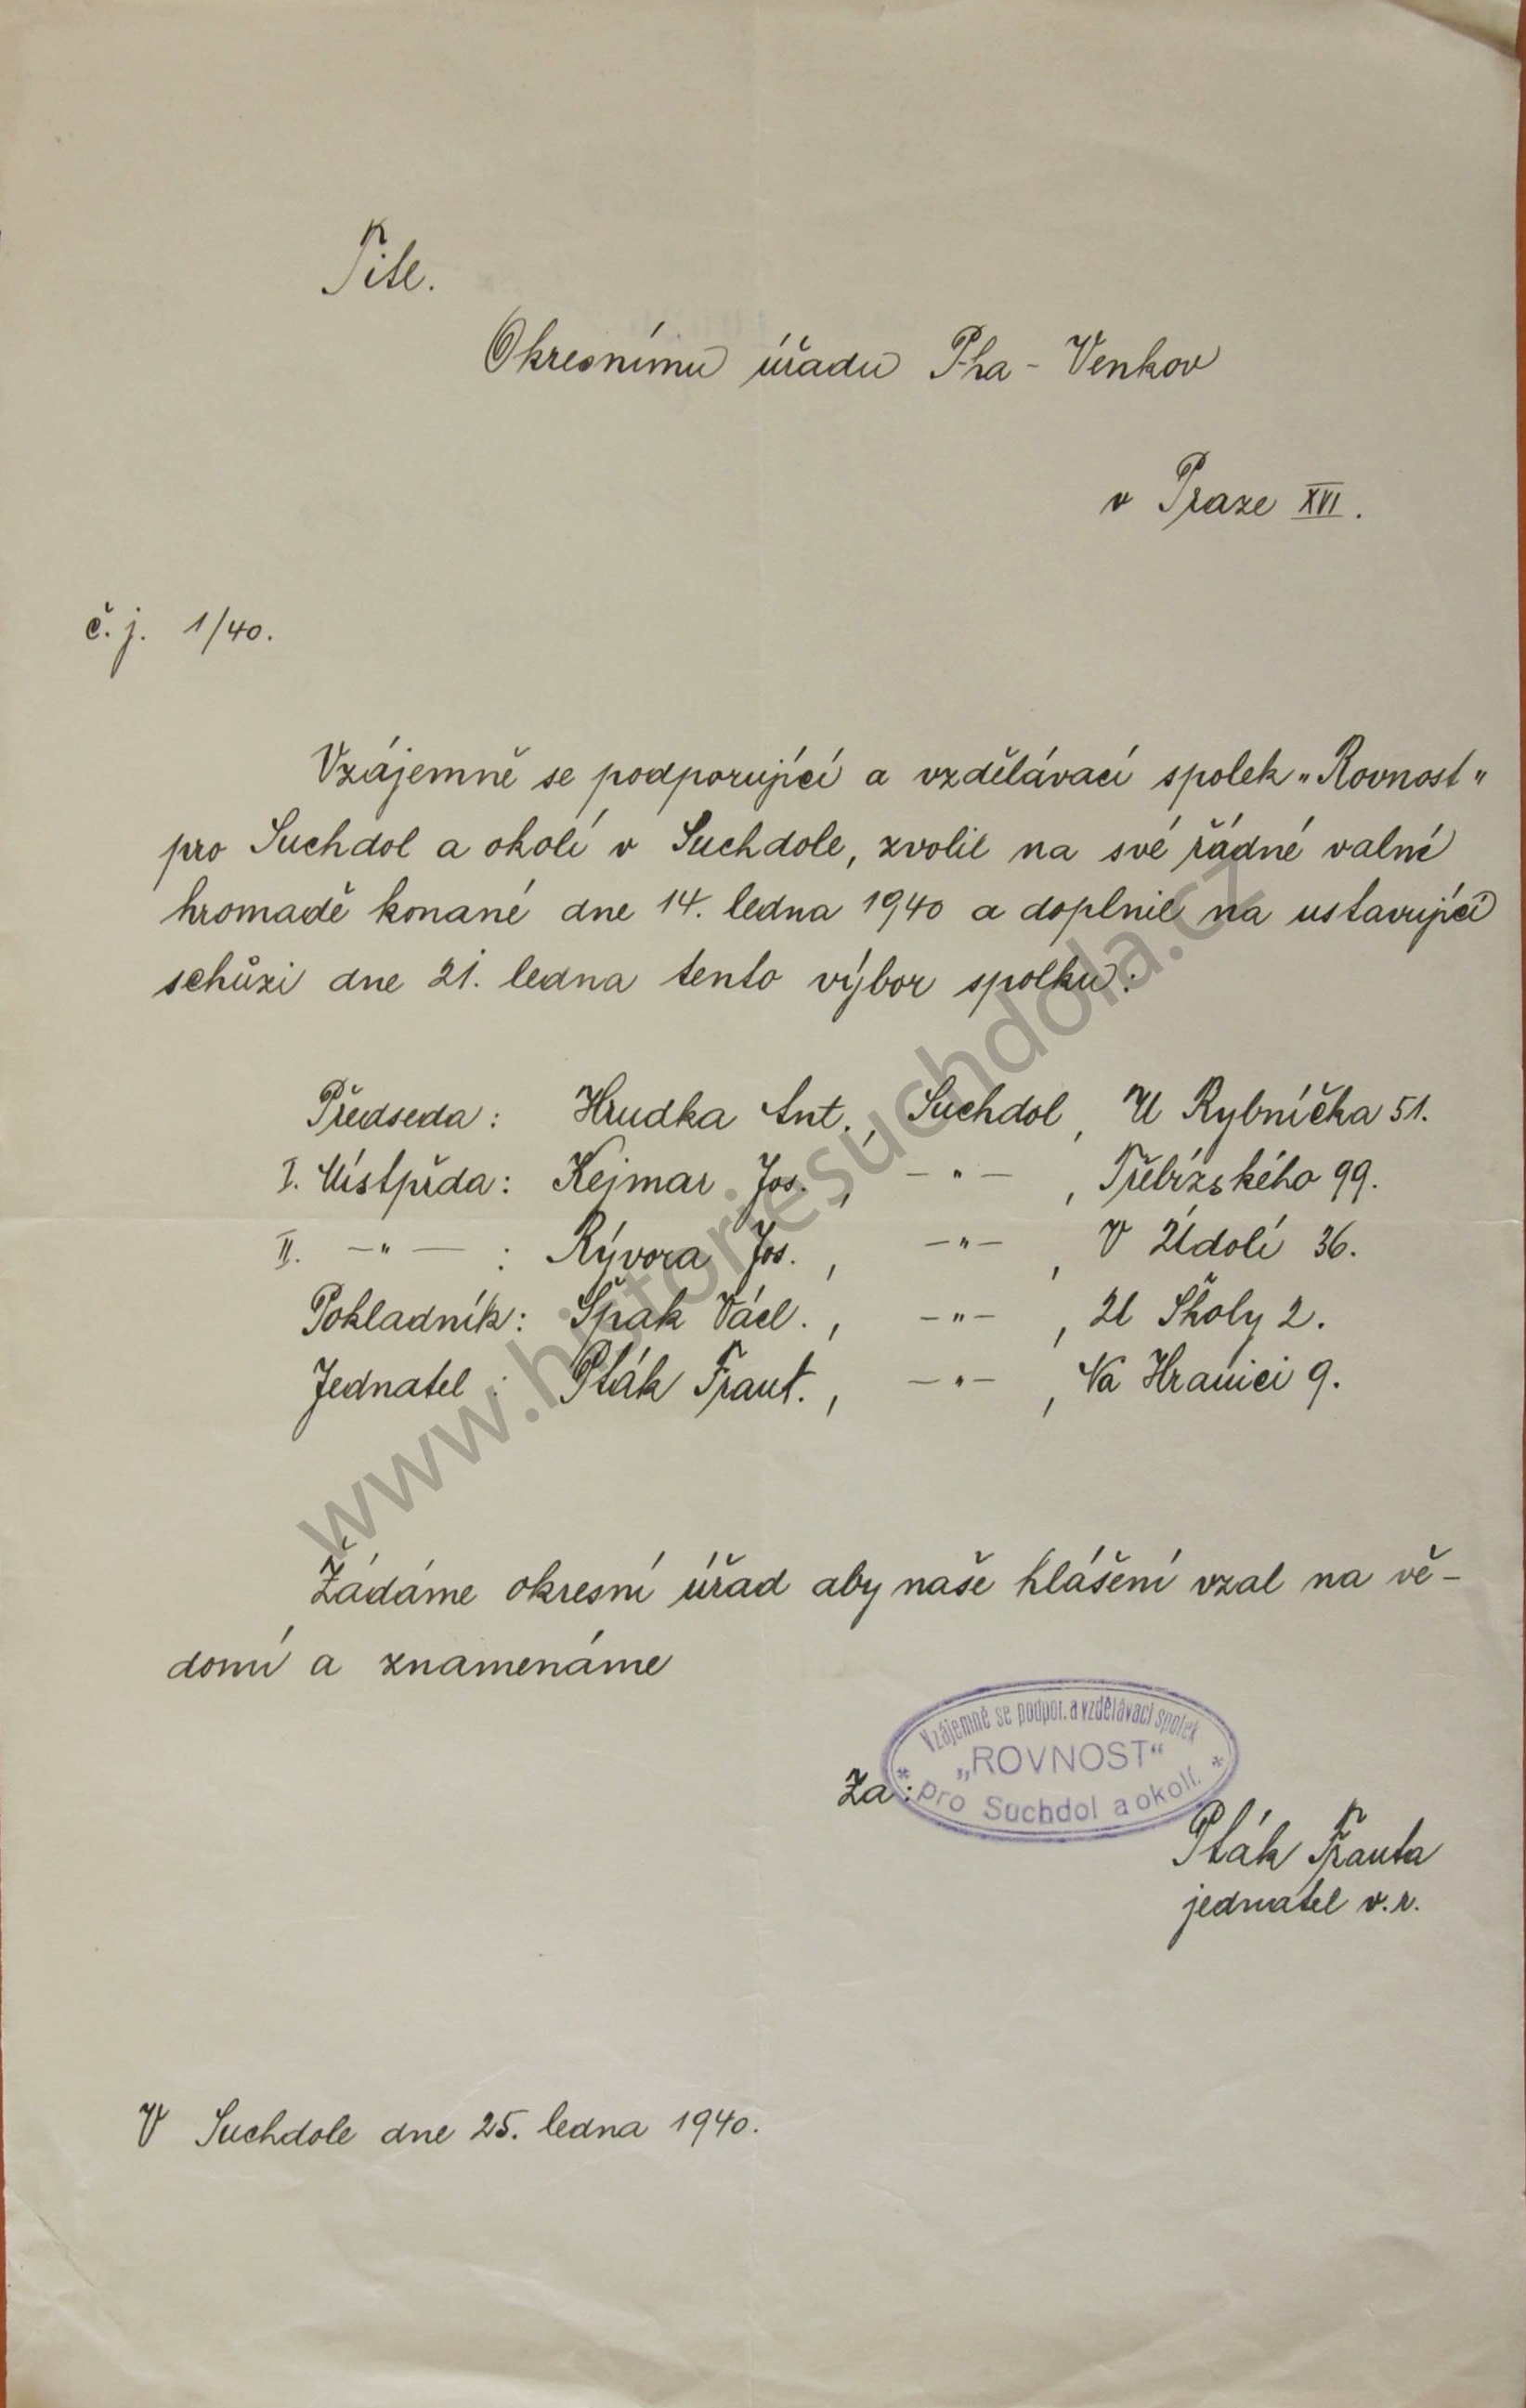 Titl.
Okresnímu úřadu Pha - Venkov
v Praze XVI.
č. j. 1/40.
Vzájemně se podporující a vzdělávací spolek "Rovnost"
pro Suchdol a okolí v Suchdole, zvolil na své řádné valné
hromadě konané dne 14. ledna 1940 a doplnil na ustavující
schůzi dne 21. ledna tento výbor spolku:
Předseda: Hrudka Ant., Suchdol, U Rybníčka 51.
I. Místpřda: Kejmar Jos., —"—, Třebízského 99.
II. —"— : Rývora Jos., —"—, V Údolí 36.
Pokladník: Špak Václ., —"—, U Školy 2.
Jednatel: Pták Frant., —"—, Na Hranici 9.
Žádáme okresní úřad aby naše hlášení vzal na vě-
domí a znamenáme
Vzájemně se podpor. a vzdělávací spolek
„ROVNOST“
Za: * pro Suchdol a okolí. *
Pták Franta
jednatel v.r.
V Suchdole dne 25. ledna 1940.
www.historiesuchdola.cz